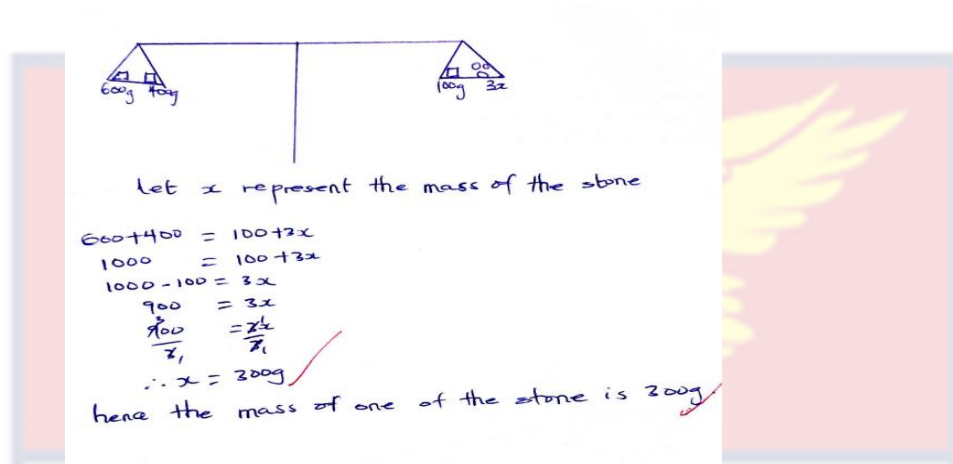 600g 400g 100g 3x
let x represent the mass of the stone
600+400 = 100+3x
1000 = 100+3x
1000-100 = 3x
900 = 3x
900/3 = 3x/3
∴ x = 300g
hence the mass of one of the stone is 300g.